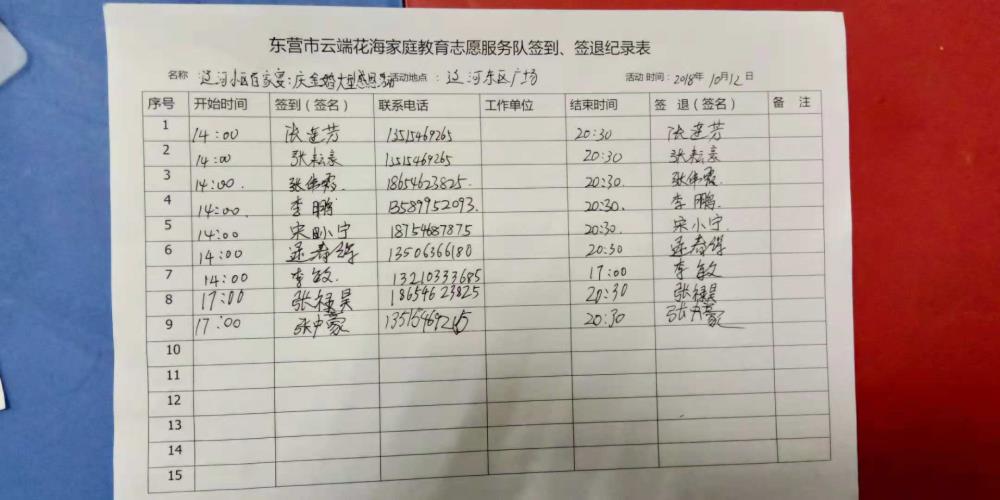 东营市云端花海家庭教育志愿服务队签到、签退纪录表
名称 辽河小区百家宴:庆金婚大型感恩活动 活动地点: 辽河东区广场 活动时间: 2018年10月12日
序号 开始时间 签到(签名) 联系电话 工作单位 结束时间 签 退(签名) 备 注
1 14:00 张莲芳 13515469265 20:30 张莲芳
2 14:00 张耘 13515469265 20:30 张耘
3 14:00. 张伟霞. 18654623825. 20:30. 张伟霞.
4 14:00. 李鹏 13589952093. 20:30. 李鹏.
5 14:00 宋小宁 18754687875 20:30. 宋小宁
6 14:00 春 13506366180 20:30 春
7 14:00 李敏. 13210333685 17:00 李敏
8 17:00 张禄昊 18654623825 20:30 张禄昊
9 17:00 张 20:30 张
10
11
12
13
14
15